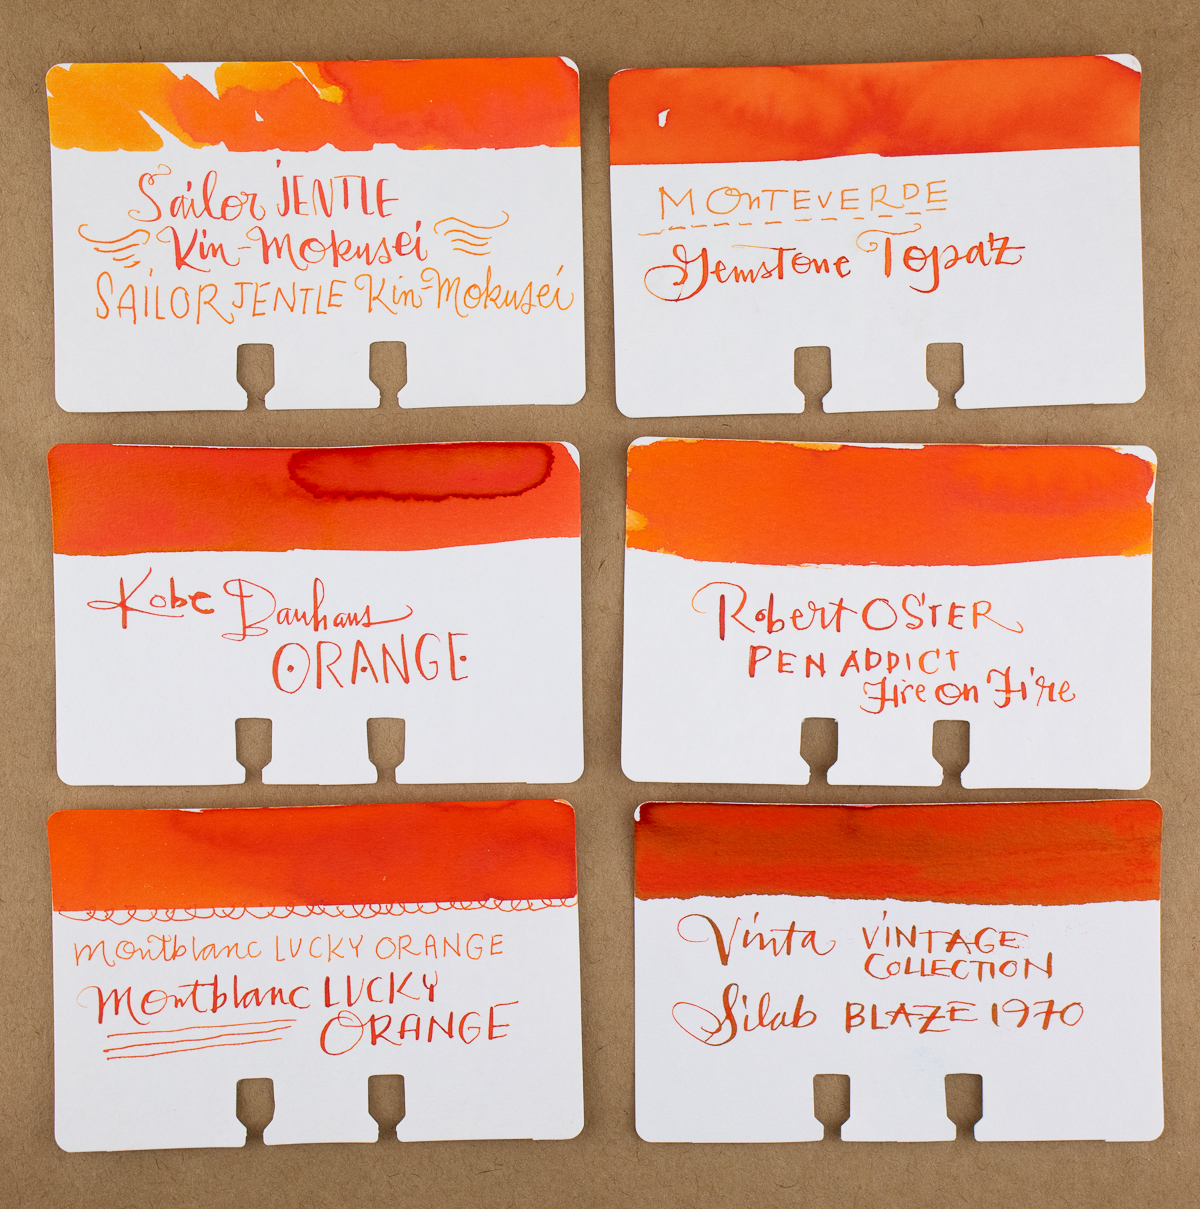 Sailor JENTLE
Kin-Mokusei
SAILOR JENTLE Kin-Mokusei
MONTEVERDE
Gemstone Topaz
Kobe Bauhaus
ORANGE
Robert OSTER
PEN ADDICT
Fire on Fire
Montblanc LUCKY ORANGE
Montblanc LUCKY
ORANGE
Vinta VINTAGE
COLLECTION
Silab BLAZE 1970